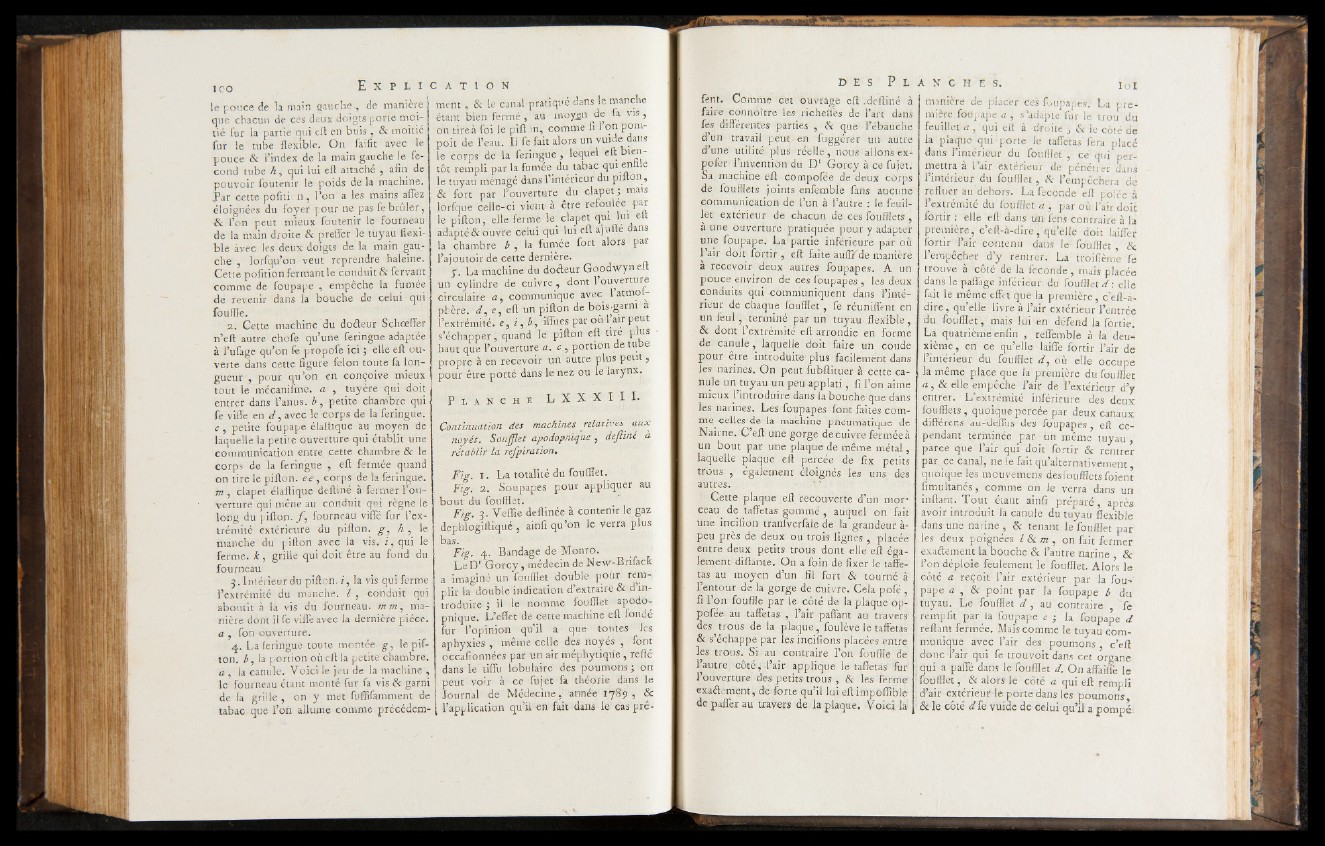 100 EXPLICATION
le pouce de la main gauche, de manière
que chacun de ces deux doigts porte moi-
tié ſur la partie qui eſt en buis, & moitié
ſur le tube flexible. On ſaiſit avec le
pouce & l'index de la main gauche le ſe-
cond tube h, qui lui eſt attaché, afin de
pouvoir ſoutenir le poids de la machine.
Par cette poſiti n, l'on a les mains aſſez
éloignées du foyer pour ne pas ſe brûler,
& l'on peut mieux ſoutenir le fourneau
de la main droite & preſſer le tuyau flexi-
ble avec les deux doigts de la main gau-
che, lorſqu'on veut reprendre haleine.
Cette poſition fermant le conduit & ſervant
comme de ſoupape, empêche la fumée
de revenir dans la bouche de celui qui
ſouffle.
2. Cette machine du docteur Schœffer
n'eſt autre choſe qu'une ſeringue adaptée
à l'uſage qu'on ſe propoſe ici; elle eſt ou-
verte dans cette figure ſelon toute ſa lon-
gueur, pour qu'on en conçoive mieux
tout le mécaniſme. a, tuyère qui doit
entrer dans l'anus. b, petite chambre qui
ſe viſſe en d, avec le corps de la ſeringue.
c, petite ſoupape élaſtique au moyen de
laquelle la petite ouverture qui établit une
communication entre cette chambre & le
corps de la ſeringue, eſt fermée quand
on tire le piſton. ee, corps de la ſeringue.
m, clapet élaſtique deſtiné à fermer l'ou-
verture qui mène au conduit qui règne le
long du piſton. f, fourneau viſſé ſur l'ex-
trémité extérieure du piſton. g, h, le
manche du piſton avec la vis. i, qui le
ferme. k, grille qui doit être au fond du
fourneau
3. Intérieur du piſton. i, la vis qui ferme
l'extrémité du manche. l, conduit qui
aboutit à la vis du fourneau. mm, ma-
nière dont il ſe viſſe avec la dernière pièce.
a, ſon ouverture.
4. La ſeringue toute montée g, le piſ-
ton. b, la portion où eſt la petite chambre.
a, la canule. Voici le jeu de la machine,
le fourneau étant monté ſur ſa vis & garni
de ſa grille, on y met ſuffiſamment de
tabac que l'on allume comme précédem-
ment, & le canal pratiqué dans le manche
étant bien fermé, au moyen de ſa vis,
on tire à ſoi le piſt n, comme ſi l'on pom-
poit de l'eau. Il ſe fait alors un vuide dans
le corps de la ſeringue, lequel eſt bien-
tôt rempli par la fumée du tabac qui enfile
le tuyau ménagé dans l'intérieur du piſton,
& ſort par l'ouverture du clapet; mais
lorſque celle-ci vient à être refoulée par
le piſton, elle ferme le clapet qui lui eſt
adapté & ouvre celui qui lui eſt ajuſté dans
la chambre b, la fumée ſort alors par
l'ajoutoir de cette dernière.
5. La machine du docteur Goodwyn eſt
un cylindre de cuivre, dont l'ouverture
circulaire a, communique avec l'atmoſ-
phère. d, e, eſt un piſton de bois garni à
l'extrémité. e, i, b, iſſues par où l'air peut
s'échapper, quand le piſton eſt tiré plus
haut que l'ouverture a. c, portion de tube
propre à en recevoir un autre plus petit,
pour être porté dans le nez ou le larynx.
PLANCHE LXXXIII.
Continuation des machines relatives aux
noyés. Soufflet apodopnique, deſtiné à
rétablir la reſpiration.
Fig. 1. La totalité du ſoufflet.
Fig. 2. Soupapes pour appliquer au
bout du ſoufflet.
Fig. 3. Veſſie deſtinée à contenir le gaz
dephlogiſtiqué, ainſi qu'on le verra plus
bas.
Fig. 4. Bandage de Monro.
Le Dr Gorcy, médecin de New-Briſack
a imaginé un ſoufflet double pour rem-
plir la double indication d'extraire & d'in-
troduire; il le nomme ſoufflet apodo-
pnique. L'effet de cette machine eſt fondé
ſur l'opinion qu'il a que toutes les
aphyxies, même celle des noyés, ſont
occaſionnées par un air méphytique, reſté
dans le tiſſu lobulaire des poumons; on
peut voir à ce ſujet ſa théorie dans le
Journal de Médecine, année 1789, &
l'application qu'il en fait dans le cas pré-
DES PLANCHES. 101
ſent. Comme cet ouvrage eſt deſtiné à
faire connoître les richeſſes de l'art dans
ſes différentes parties, & que l'ébauche
d'un travail peut en ſuggérer un autre
d'une utilité plus réelle, nous allons ex-
poſer l'invention du Dr Gorcy à ce ſujet.
Sa machine eſt compoſée de deux corps
de ſoufflets joints enſemble ſans aucune
communication de l'un à l'autre: le feuil-
let extérieur de chacun de ces ſoufflets,
a une ouverture pratiquée pour y adapter
une ſoupape. La partie inférieure par où
l'air doit ſortir, eſt faite auſſi de manière
à recevoir deux autres ſoupapes. A un
pouce environ de ces ſoupapes, les deux
conduits qui communiquent dans l'inté-
rieur de chaque ſoufflet, ſe réuniſſent en
un ſeul, terminé par un tuyau flexible,
& dont l'extrémité eſt arrondie en forme
de canule, laquelle doit faire un coude
pour être introduite plus facilement dans
les narines. On peut ſubſtituer à cette ca-
nule un tuyau un peu applati, ſi l'on aime
mieux l'introduire dans la bouche que dans
les narines. Les ſoupapes ſont faites com-
me celles de la machine pneumatique de
Nairne. C'eſt une gorge de cuivre fermée à
un bout par une plaque de même métal,
laquelle plaque eſt percée de ſix petits
trous, également éloignés les uns des
autres.
Cette plaque eſt recouverte d'un mor-
ceau de taffetas gommé, auquel on fait
une inciſion tranſverſale de la grandeur à-
peu près de deux ou trois lignes, placée
entre deux petits trous dont elle eſt éga-
lement diſtante. On a ſoin de fixer le taffe-
tas au moyen d'un fil fort & tourné à
l'entour de la gorge de cuivre. Cela poſé,
ſi l'on ſouffle par le côté de la plaque op-
poſée au taffetas, l'air paſſant au travers
des trous de la plaque, ſoulève le taffetas
& s'échappe par les inciſions placées entre
les trous. Si au contraire l'on ſouffle de
l'autre côté, l'air applique le taffetas ſur
l'ouverture des petits trous, & les ferme
exactement, de ſorte qu'il lui eſt impoſſible
de paſſer au travers de la plaque. Voici la
manière de placer ces ſoupapes. La pre-
mière ſoupape a, s'adapte ſur le trou du
feuillet a, qui eſt à droite, & le côté de
la plaque qui porte le taffetas ſera placé
dans l'intérieur du ſoufflet, ce qui per-
mettra à l'air extérieur de pénétrer dans
l'intérieur du ſoufflet, & l'empêchera de
refluer au dehors. La ſeconde eſt poſée à
l'extrémité du ſoufflet a, par où l'air doit
ſortir: elle eſt dans un ſens contraire à la
première, c'eſt-à-dire, qu'elle doit laiſſer
ſortir l'air contenu dans le ſoufflet, &
l'empêcher d'y rentrer. La troiſième ſe
trouve à côté de la ſeconde, mais placée
dans le paſſage inférieur du ſoufflet d: elle
fait le même effet que la première, c'eſt-à-
dire, qu'elle livre à l'air extérieur l'entrée
du ſoufflet, mais lui en défend la ſortie.
La quatrième enfin, reſſemble à la deu-
xième, en ce qu'elle laiſſe ſortir l'air de
l'intérieur du ſoufflet d, où elle occupe
la même place que la première du ſoufflet
a, & elle empêche l'air de l'extérieur d'y
entrer. L'extrémité inférieure des deux
ſoufflets, quoique percée par deux canaux
différens au-deſſus des ſoupapes, eſt ce-
pendant terminée par un même tuyau,
parce que l'air qui doit ſortir & rentrer
par ce canal, ne le fait qu'alternativement,
quoique les mouvemens des ſoufflets ſoient
ſimultanés, comme on le verra dans un
inſtant. Tout étant ainſi préparé, après
avoir introduit la canule du tuyau flexible
dans une narine, & tenant le ſoufflet par
les deux poignées l & m, on fait fermer
exactement la bouche & l'autre narine, &
l'on déploie ſeulement le ſoufflet. Alors le
côté a reçoit l'air extérieur par la ſou-
pape a, & point par la ſoupape b du
tuyau. Le ſoufflet d, au contraire, ſe
remplit par la ſoupape c; la ſoupape d
reſtant fermée. Mais comme le tuyau com-
munique avec l'air des poumons, c'eſt
donc l'air qui ſe trouvoit dans cet organe
qui a paſſé dans le ſoufflet d. On affaiſſe le
ſoufflet, & alors le côté a qui eſt rempli
d'air extérieur le porte dans les poumons,
& le côté d ſe vuide de celui qu'il a pompé